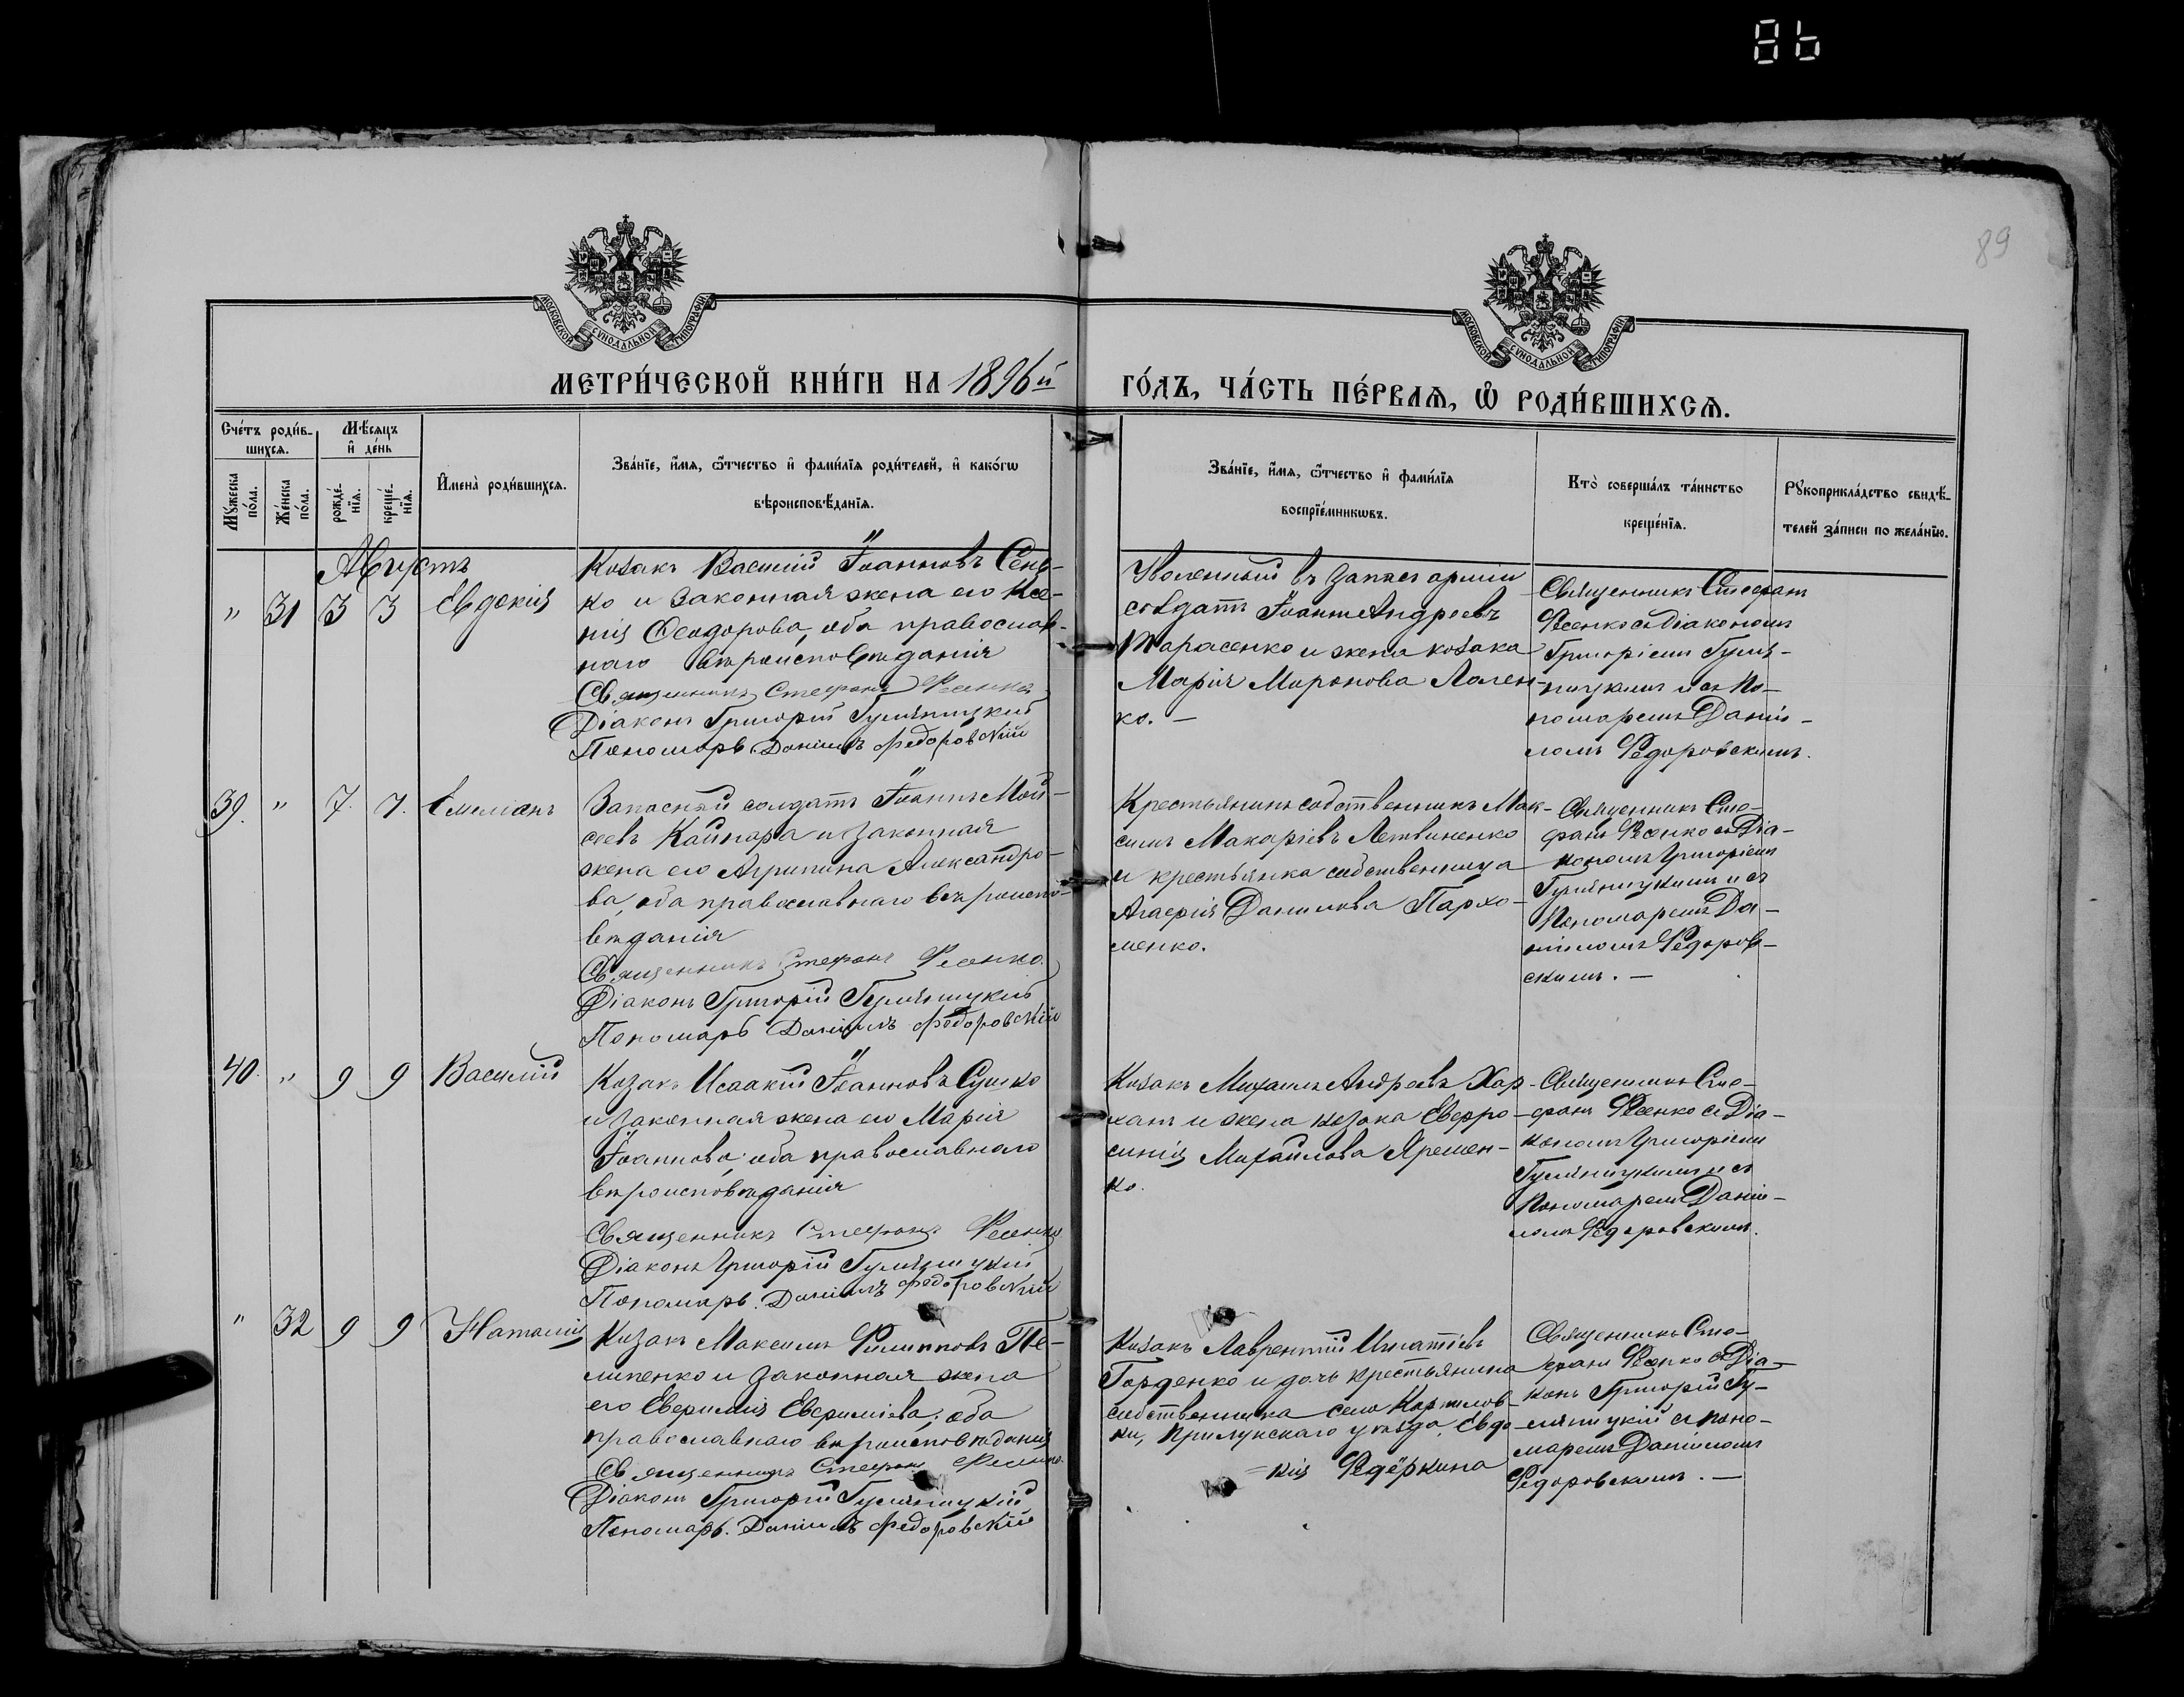 86
89
МОСКОВСКОЙ СУНОДАЛЬНОЙ ТИПОГРАФІИ
МОСКОВСКОЙ СУНОДАЛЬНОЙ ТИПОГРАФІИ
МЕТРИ́ЧЕСКОЙ КНИ́ГИ НА 1896й
ГО́ДЪ, ЧА́СТЬ ПЕ́РВАѦ, Ѡ҆ РОДИ́ВШИХСѦ.
Сче́тъ роди́в-
шихсѧ.
Мꙋ́жеска по́ла.
Же́нска по́ла.
Мѣ́сѧцъ
и҆ де́нь
рожде́-
нїѧ.
креще́-
нїѧ.
И҆мена̀ роди́вшихсѧ.
Зва́нїе, и҆́мѧ, ѻ҆́тчество и҆ фами́лїѧ роди́телей, и҆ како́гѡ
вѣроисповѣ́данїѧ.
Зва́нїе, и҆́мѧ, ѻ҆́тчество и҆ фами́лїѧ
воспрїе́мникѡвъ.
Кто̀ соверша́лъ та́инство
креще́нїѧ.
Рꙋкоприкла́дство свидѣ́-
телей за́писи по жела́нїю.
Августъ
" 31 3 3 Евдокія
Козакъ Василій Іоанновъ Сень-
ко и законная жена его Ксе-
нія Ѳеодорова, оба православ-
наго вѣроисповѣданія
Священникъ Стефанъ Фесенко
Діаконъ Григорій Гуляницкій
Пономарь Даніилъ Федоровскій
Уволенный въ запасъ арміи
солдатъ Іоаннъ Андреевъ
Тарасенко и жена козака
Марія Миронова Лален-
ко. —
Священникъ Стефанъ
Фесенко съ Діакономъ
Григоріемъ Гуля-
ницкимъ и съ По-
номаремъ Даніи-
ломъ Федоровскимъ.
39. " 7. 7. Емиліанъ
Запасный солдатъ Іоаннъ Мои-
сеевъ Кайнара и законная
жена его Агрипина Александро-
ва, оба православнаго вѣроиспо-
вѣданія
Священникъ Стефанъ Фесенко
Діаконъ Григорій Гуляницкій
Пономарь Даніилъ Федоровскій
Крестьянинъ собственникъ Мак-
симъ Макаріевъ Летвиненко
и крестьянка собственница
Агафія Данилова Пархо-
менко.
Священникъ Сте-
фанъ Фесенко съ Діа-
кономъ Григоріемъ
Гуляницкимъ и съ
Пономаремъ Да-
ніиломъ Федоров-
скимъ. —
40. " 9 9 Василій
Козакъ Исаакій Іоанновъ Сушко
и законная жена его Марія
Іоаннова; оба православнаго
вѣроисповѣданія
Священникъ Стефанъ Фесенко
Діаконъ Григорій Гуляницкій
Пономарь. Даніилъ Федоровскій
Козакъ Михаилъ Андреевъ Хар-
ханъ и жена козака Евфро-
синія Михайлова Яремен-
ко.
Священникъ Сте-
фанъ Фесенко съ Діа-
кономъ Григоріемъ
Гуляницкимъ и съ
Пономаремъ Даніи-
ломъ Федоровскимъ.
" 32 9 9 Наталія
Козакъ Максимъ Филипповъ Пе-
липенко и законная жена
его Евфимія Евфиміева; оба
православнаго вѣроисповѣданія
Священникъ Стефанъ Фесенко
Діаконъ Григорій Гуляницкій
Пономарь. Даніилъ Федоровскій
Козакъ Лаврентій Игнатіевъ
Горденко и дочь крестьянина
собственника села
ки, Прилукскаго уѣзда, Евдо-
кія Федёркина
Священникъ Сте-
фанъ Фесенко съ Діа-
конъ Григорій Гу-
ляницкій съ поно-
маремъ Даніиломъ
Федоровскимъ. —